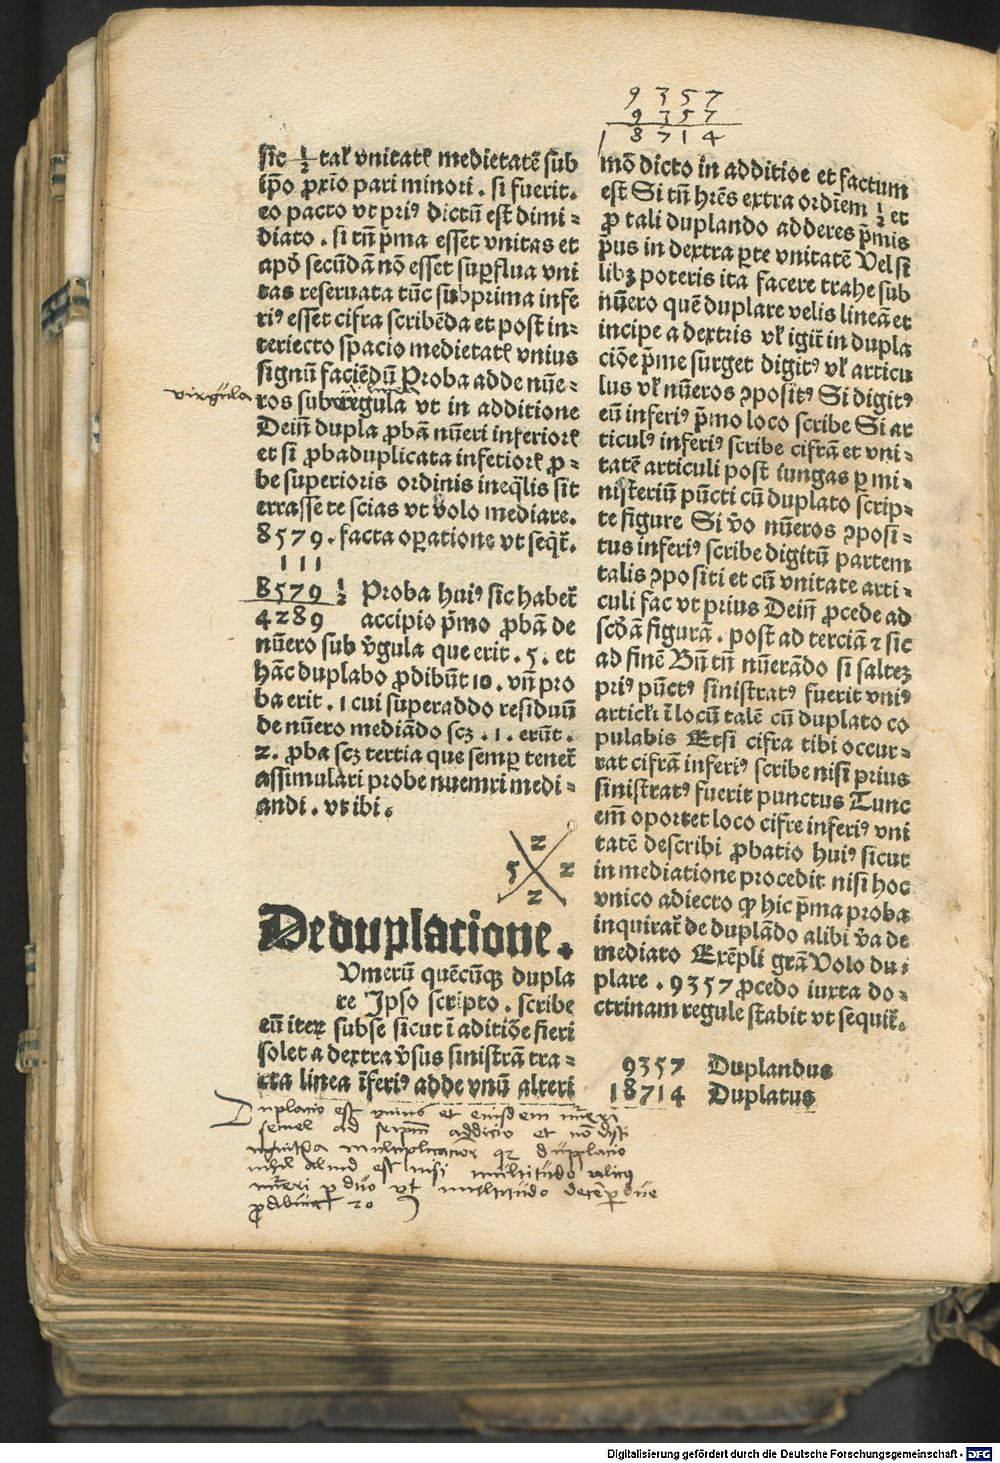 9357
9357
18714
sic ½ tal̃ vnitatẽ medietatẽ sub
ip̃o ꝓxĩo pari minori . si fuerit.
eo pacto vt priꝰ dictũ est dimi⸗
diato . si tñ p̃ma esset vnitas et
apđ secũdã nõ esset suꝑflua vni
tas reseruata tũc subprima infe
riꝰ esset cifra scribẽda et post in⸗
teriecto spacio medietatẽ vnius
signũ faciẽdũ Proba adde nũe⸗
virgula
ros sub vt in additione
Deiñ dupla ꝓbã nũeri inferiorẽ
et si ꝓbaduplicata infetiorẽ ꝓ⸗
be superioris ordinis ineq̃lis sit
errasse te scias vt volo mediare.
8579. facta oꝑatione vt seqr̃.
111
8579 ½ Proba huiꝰ sic haber̃
4289 accipio p̃mo ꝓbã de
nũero sub v̾gula que erit . 5. et
hãc duplabo ꝓdibũt 10. vñ pro
ba erit . 1 cui superaddo residuũ
de nũero mediãdo scꝫ . 1. erũt.
2. ꝓba scꝫ tertia que semꝑ tener̃
assimulari probe nuemri medi⸗
andi . vt ibi.
2
5 2
2
De duplatione.
Vmerũ quẽcũqꝫ dupla
re Ipso scripto . scribe
eũ iteꝝ subse sicut ĩ aditiõe fieri
solet a dextra v̾sus sinistrã tra⸗
cta linea ĩferiꝰ adde vnũ alteri
Duplacio est unius et eiusdem nũeri
semel ad seipm̃ addicio et nõ dist
multiplicacior̃ qꝫ duplacio
nihil aliud est nisi multitudo
nũeri ꝑ duo vt multitudo decẽ ꝑ due
ꝓdibunt 20
mõ dicto in additiõe et factum
est Si tñ hr̃es extra ordĩem ½ et
ꝓ tali duplando adderes p̃mis
p̃us in dextra ꝑte vnitatẽ Vel si
libꝫ poteris ita facere trahe sub
nũero quẽ duplare velis lineã et
incipe a dextris vl̃ igit̃ in dupla
ciõe p̃me surget digitꝰ vl̃ articu
lus vl̃ nũeros ꝯpositꝰ Si digitꝰ
eũ inferiꝰ p̃mo loco scribe Si ar
ticulꝰ inferiꝰ scribe cifrã et vni⸗
tatẽ articuli post iungas ꝑ mi⸗
nisteriũ pũcti cũ duplato scrip⸗
te figure Si v̾o nũeros ꝯposi⸗
tus inferiꝰ scribe digitũ partem
talis ꝯpositi et cũ vnitate arti⸗
culi fac vt prius Deiñ ꝓcede ad
scđã figurã . post ad terciã ⁊ sic
ad finẽ Bñ tñ nũerãdo si salteꝫ
priꝰ pũctꝰ sinistratꝰ fuerit vniꝰ
articl̃i ĩ locũ talẽ cũ duplato co
pulabis Etsi cifra tibi occur⸗
rat cifrã inferiꝰ scribe nisi prius
sinistratꝰ fuerit punctus Tunc
em̃ oportet loco cifre inferiꝰ vni
tatẽ describi ꝓbatio huiꝰ sicut
in mediatione procedit nisi hoc
vnico adiecto ꝙ hic p̃ma proba
inquirar̃ de duplãdo alibi v̾a de
mediato Exẽpli grã Volo du⸗
plare . 9357 ꝓcedo iuxta do⸗
ctrinam regule stabit vt sequit̃.
9357 Duplandus
18714 Duplatus
Digitalisierung gefördert durch die Deutsche Forschungsgemeinschaft - DFG